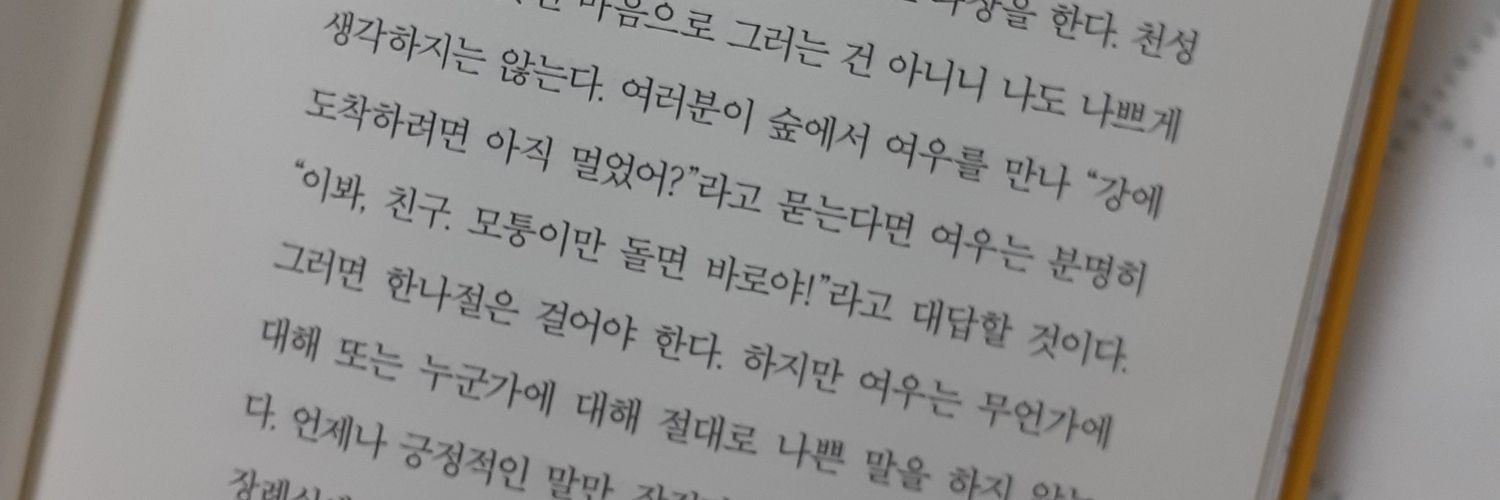 을 한다. 천성
마음으로 그러는 건 아니니 나도 나쁘게
생각하지는 않는다. 여러분이 숲에서 여우를 만나 “강에
도착하려면 아직 멀었어?”라고 묻는다면 여우는 분명히
“이봐, 친구. 모퉁이만 돌면 바로야!”라고 대답할 것이다.
그러면 한나절은 걸어야 한다. 하지만 여우는 무언가에
대해 또는 누군가에 대해 절대로 나쁜 말을 하지
다. 언제나 긍정적인 말만